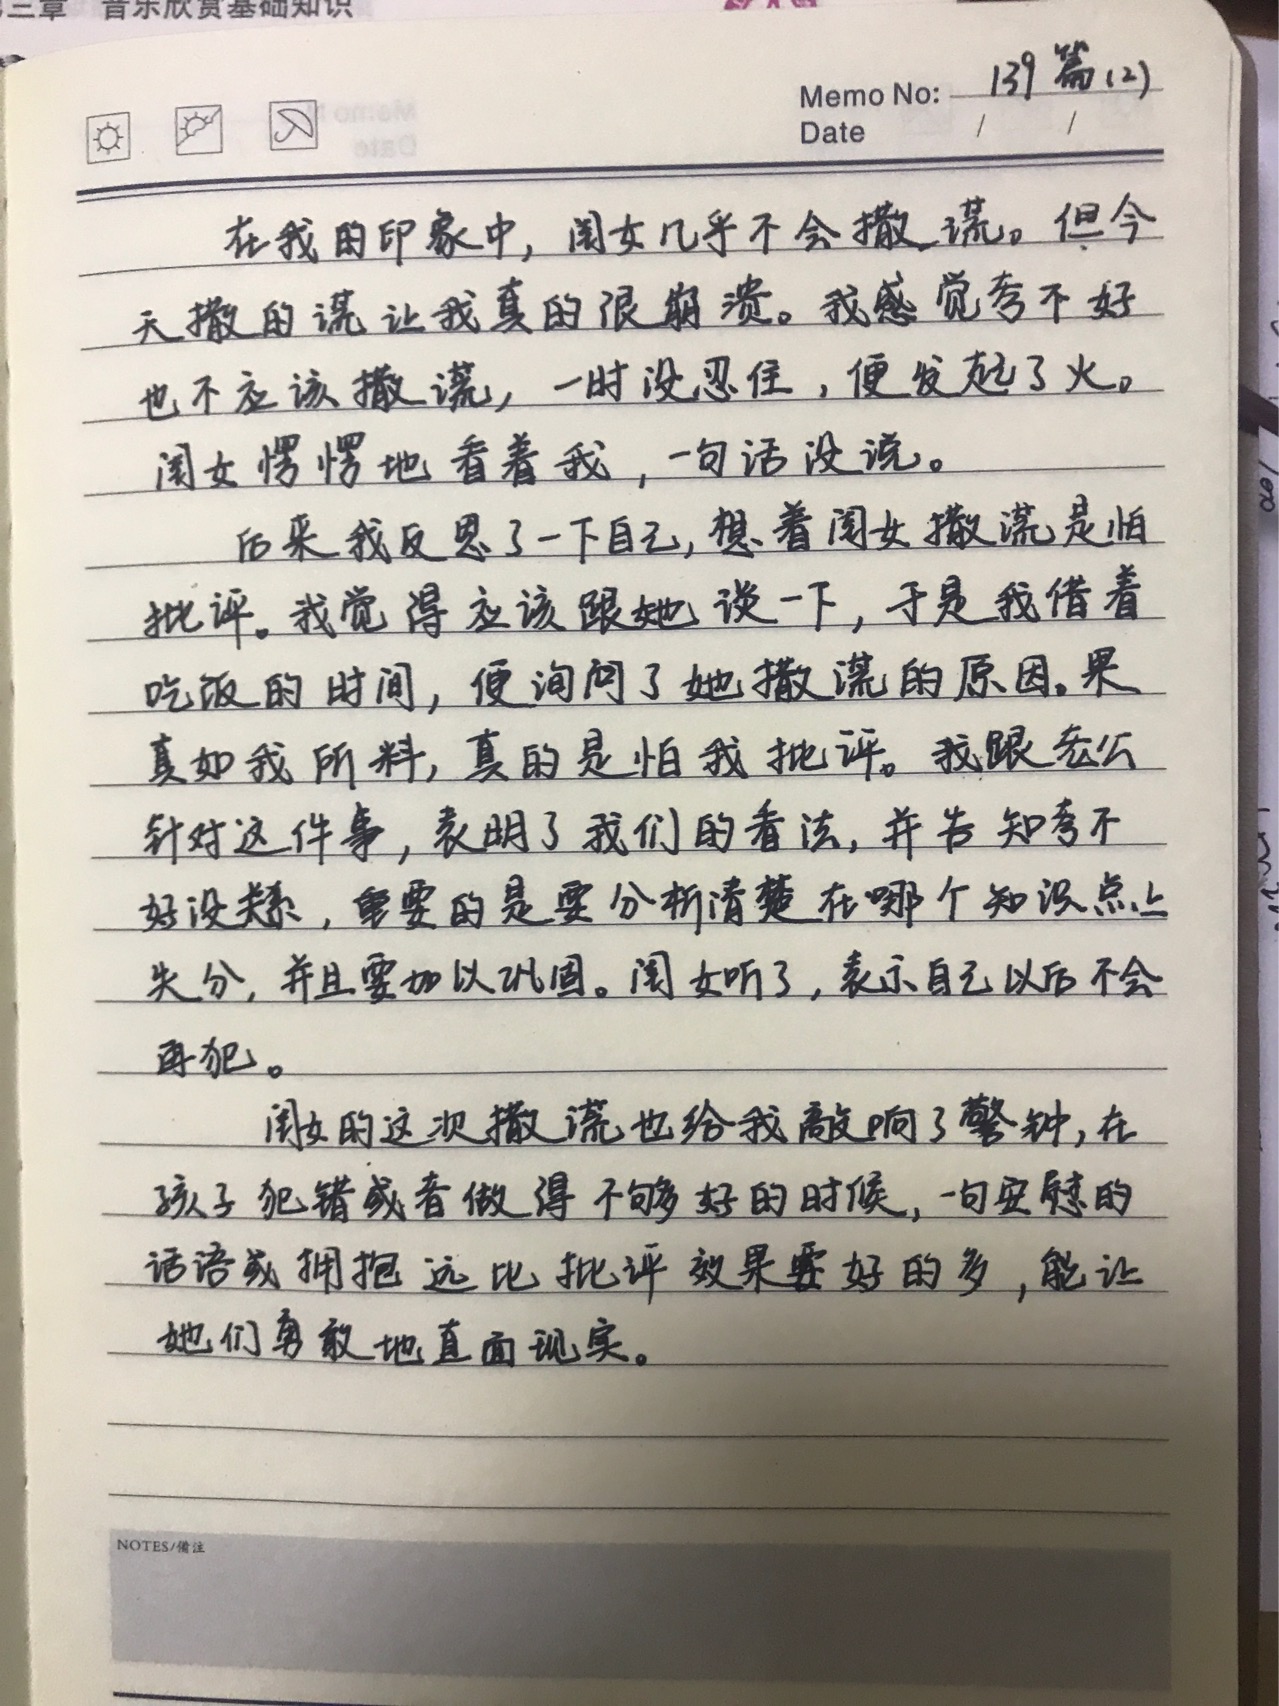 三章 音乐欣赏基础知识
Memo No: 139篇(2)
Date / /
在我的印象中，闺女几乎不会撒谎。但今
天撒的谎让我真的很崩溃。我感觉考不好
也不应该撒谎，一时没忍住，便发起了火。
闺女愣愣地看着我，一句话没说。
后来我反思了一下自己，想着闺女撒谎是怕
批评。我觉得应该跟她谈一下，于是我借着
吃饭的时间，便询问了她撒谎的原因。果
真如我所料，真的是怕我批评。我跟老公
针对这件事，表明了我们的看法，并告知考不
好没关系，重要的是要分析清楚在哪个知识点上
失分，并且要加以巩固。闺女听了，表示自己以后不会
再犯。
闺女的这次撒谎也给我敲响了警钟，在
孩子犯错或者做得不够好的时候，一句安慰的
话语或拥抱远比批评效果要好的多，能让
她们勇敢地直面现实。
NOTES/備注